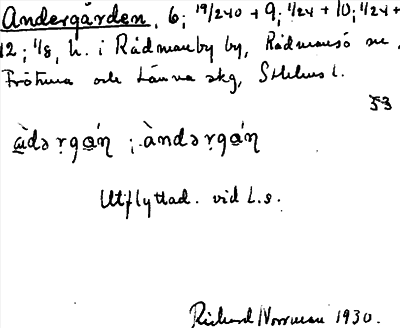 Andergården, 6; 19/240 + 9; 1/24 + 10; 1/24 +
12; 1/8, h. i Rådmanby by, Rådmansö sn,
Frötuna och Länna skg, Sthlms l.
53
Utflyttad. vid L.s.
Richard Norrman 1930.